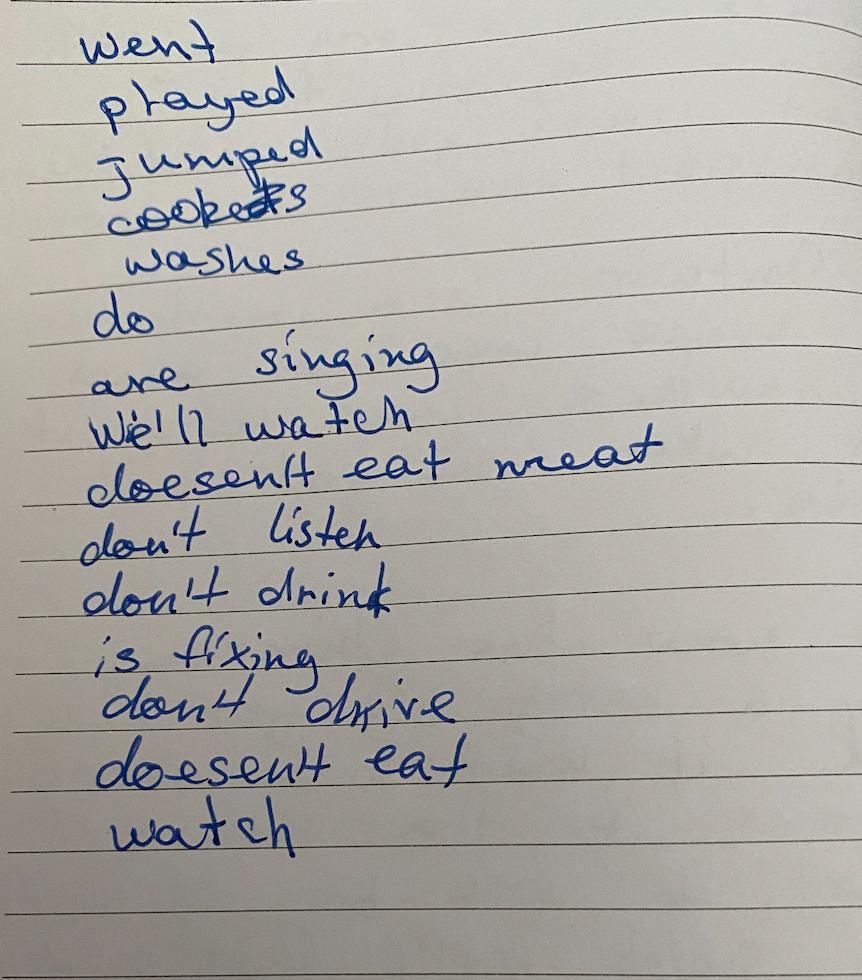 went
played
jumped
cooks
washes
do
are singing
We'll watch
doesen't eat meat
don't listen
don't drink
is fixing
don't drive
doesen't eat
watch